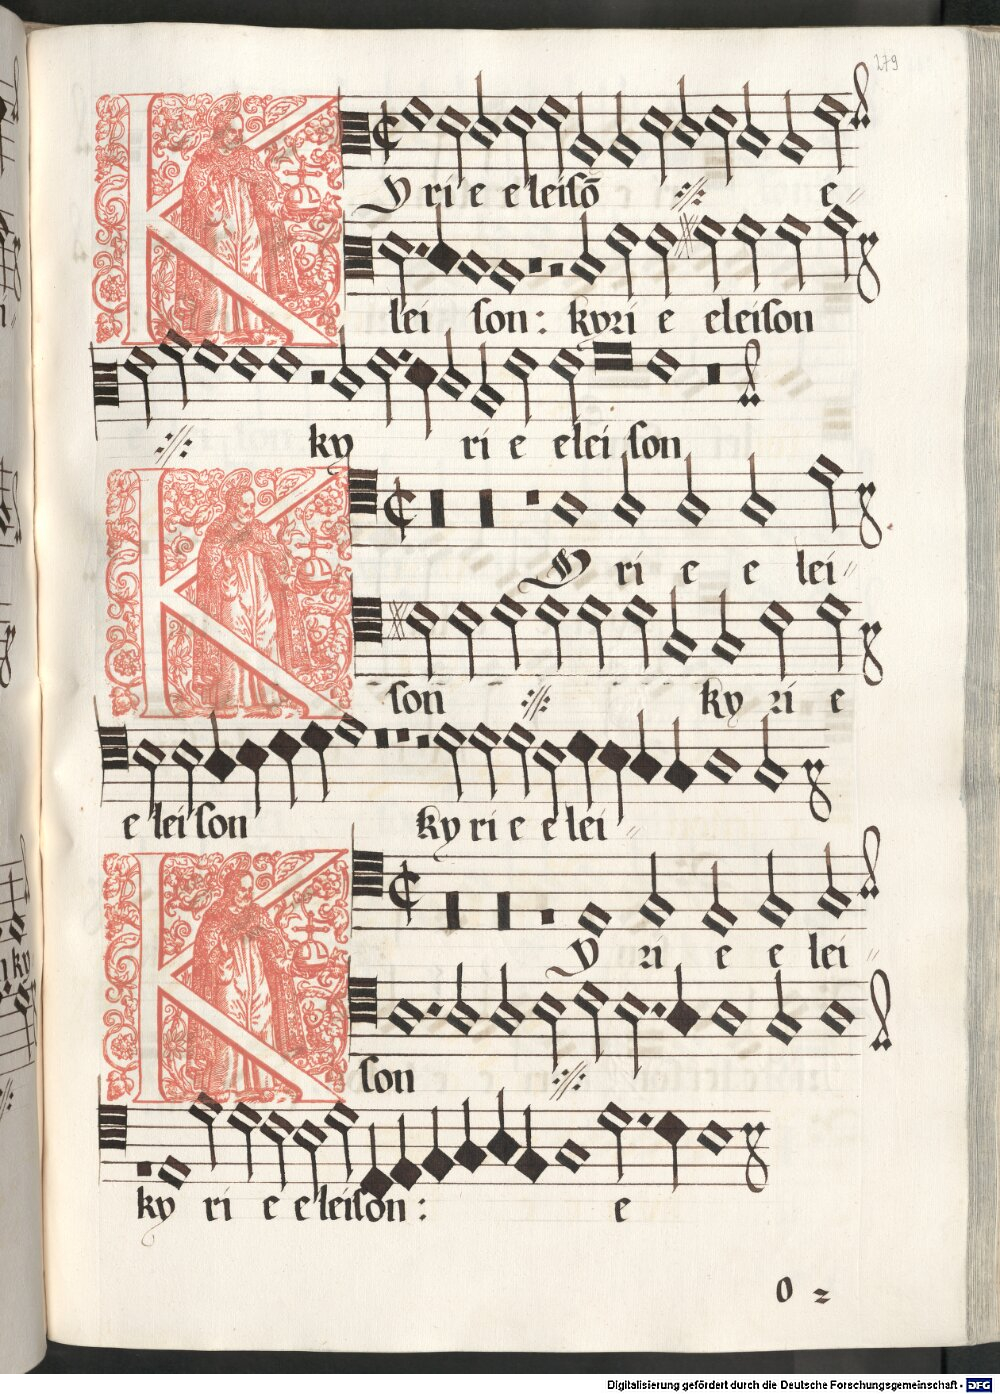 279
Kyri e e leisō e
lei son: kyri e eleison
ky ri e elei son
Kyri e e lei
son ky ri e
e lei son ky ri e e lei
Kyri e e lei
son
ky ri e e leison: e
O 2
Digitalisierung gefördert durch die Deutsche Forschungsgemeinschaft - DFG